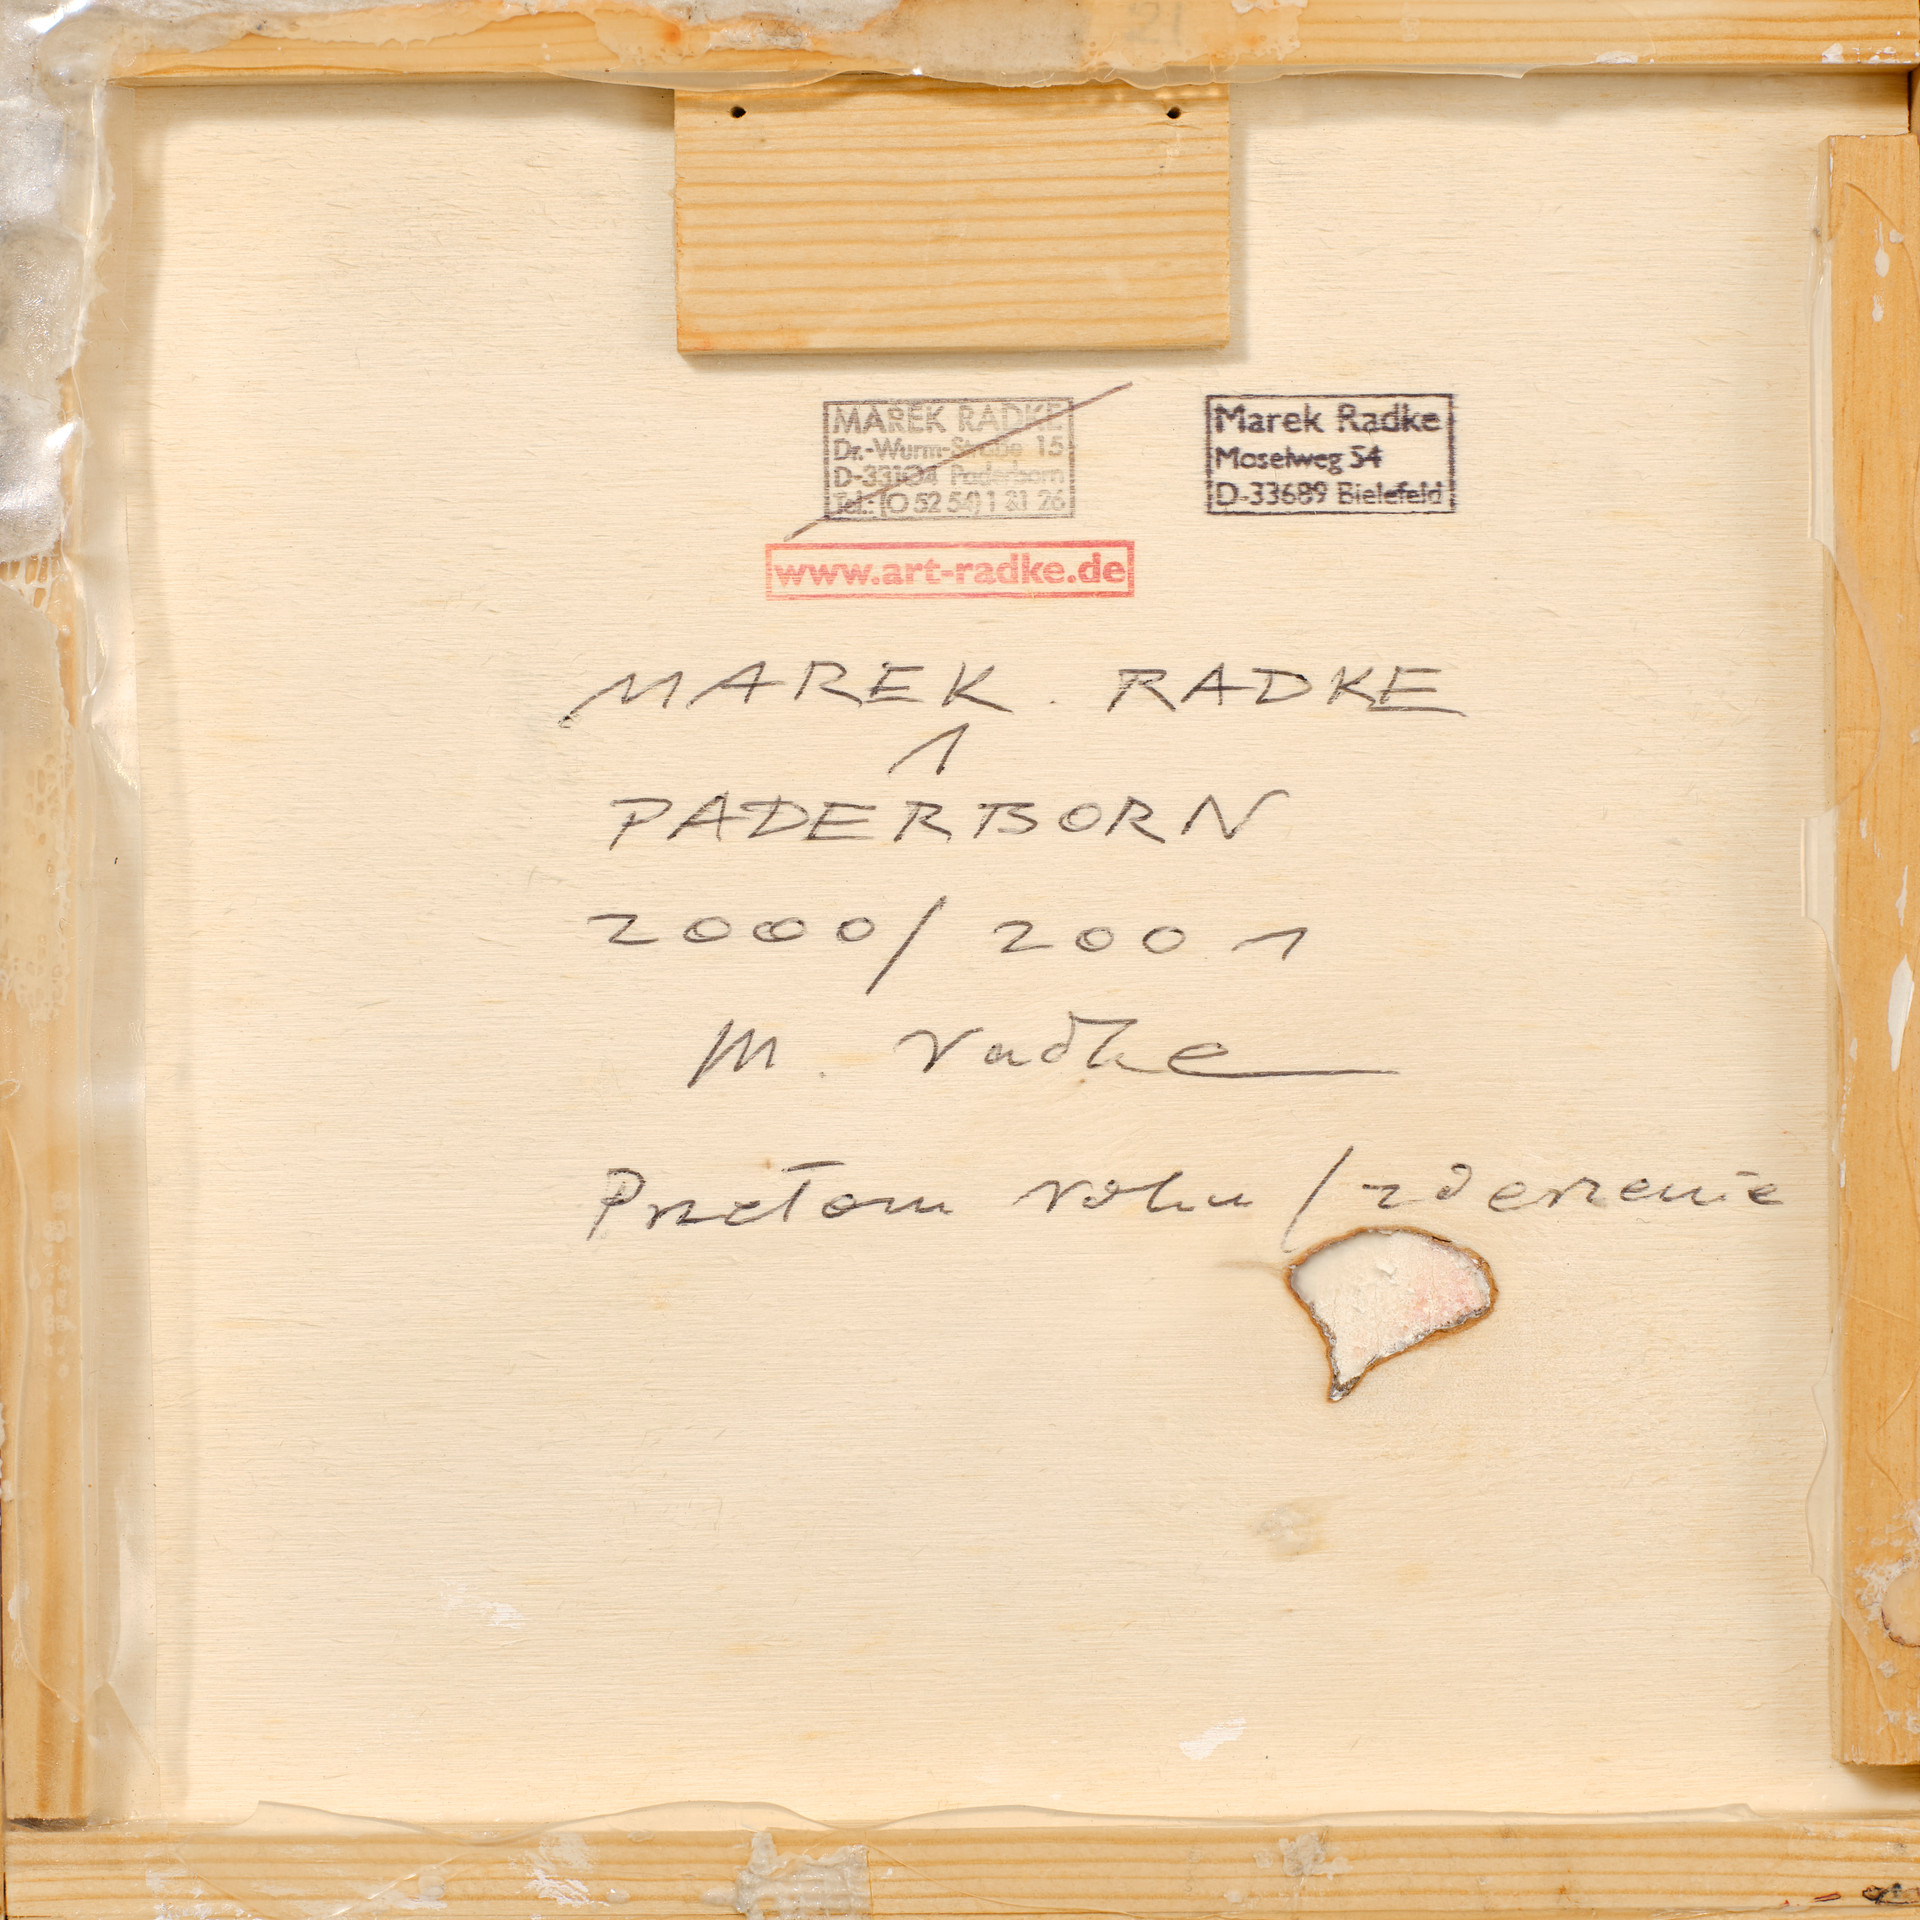 21
MAREK RADKE
Dr.-Wurm-Straße 15
D-33104 Paderborn
Tel.: (0 52 54) 1 31 26
Marek Radke
Moselweg 54
D-33689 Bielefeld
www.art-radke.de
MAREK. RADKE
1
PADERBORN
2000/2001
M. Radke
Przełom roku / zderzenie